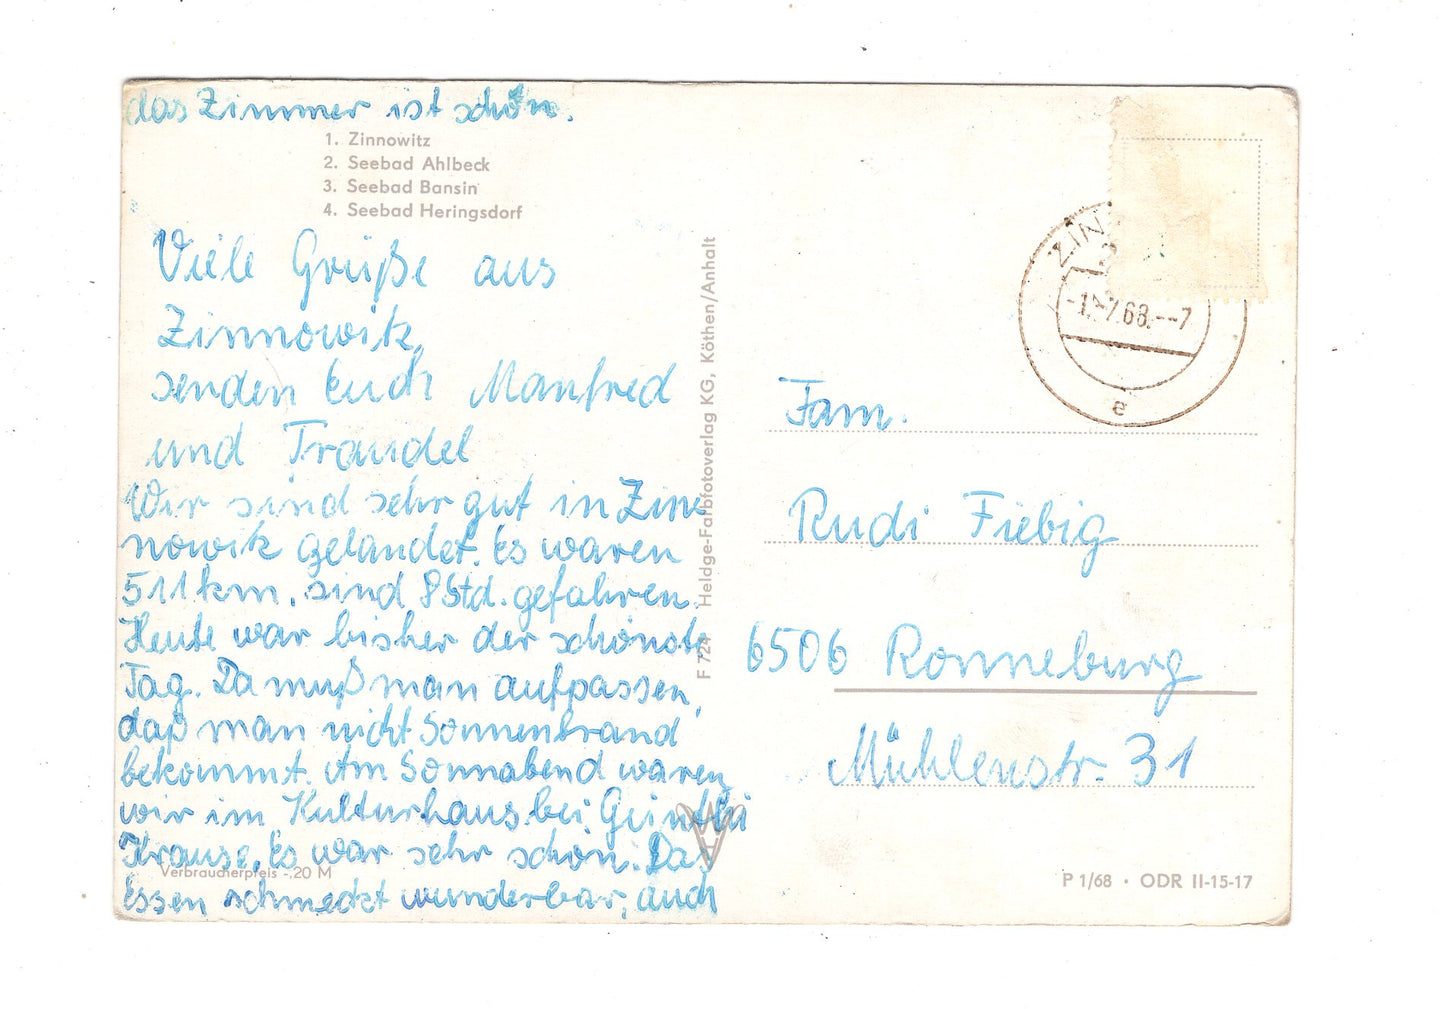 das Zimmer ist schön.
1. Zinnowitz
2. Seebad Ahlbeck
3. Seebad Bansin
4. Seebad Heringsdorf
Viele Grüße aus
Zinnowitz,
senden Euch Manfred
und Traudel
Wir sind sehr gut in Zin-
nowitz gelandet. Es waren
511 km, sind 8 Std. gefahren.
Heute war bisher der schönste
Tag. Da muß man aufpassen,
daß man nicht Sonnenbrand
bekommt. Am Sonnabend waren
wir im Kulturhaus bei
Krause. Es war sehr schön. Das
Verbraucherpreis -,20 M
Essen schmeckt wunderbar, auch
F 724 Heldge-Farbfotoverlag KG, Köthen/Anhalt
ZIN
-1.-7.68.--7
e
Fam.
Rudi Fiebig
6506 Ronneburg
Mühlenstr. 31
P 1/68 · ODR II-15-17